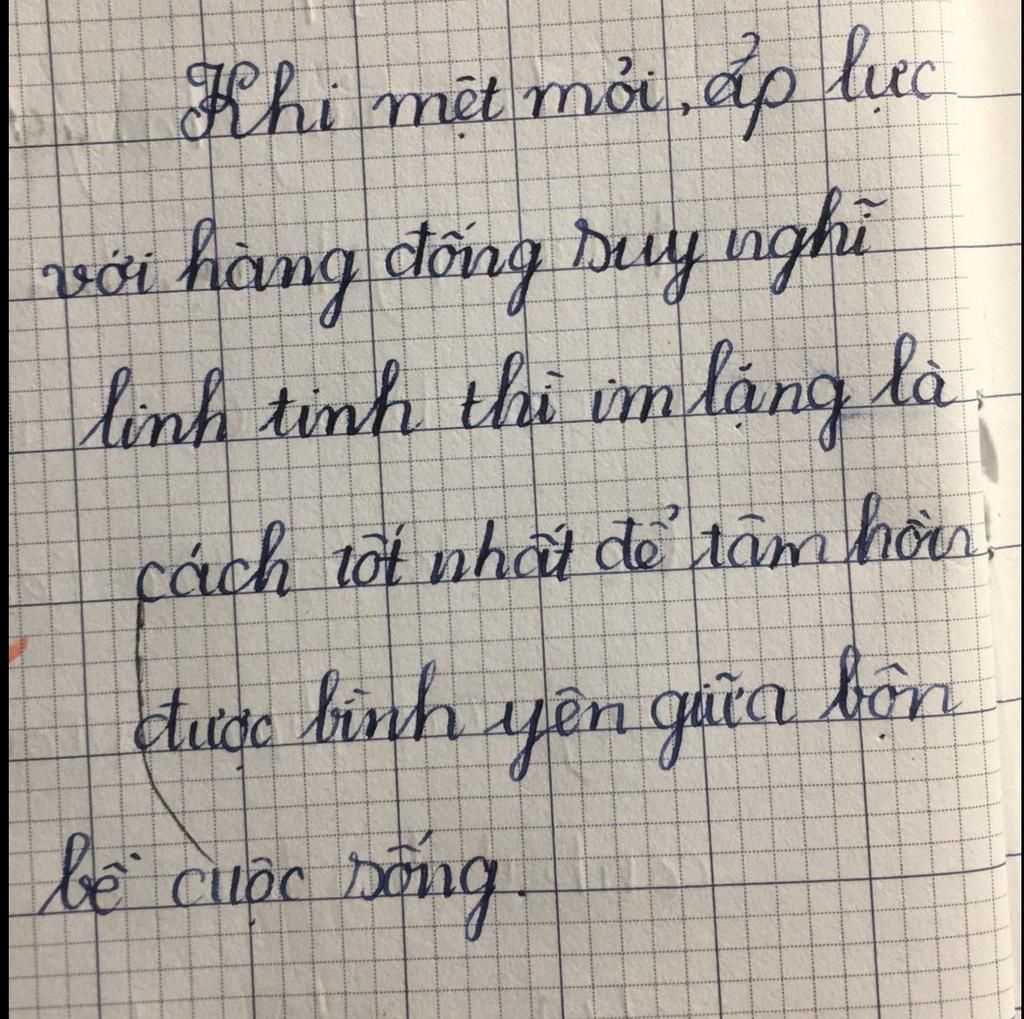 Khi mệt mỏi, áp lực
với hàng đống suy nghĩ
linh tinh thì im lặng là
cách tốt nhất để tâm hồn
được bình yên giữa bộn
bề cuộc sống.